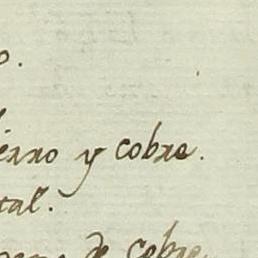 o.
erro y cobre.
tal.
de cobre